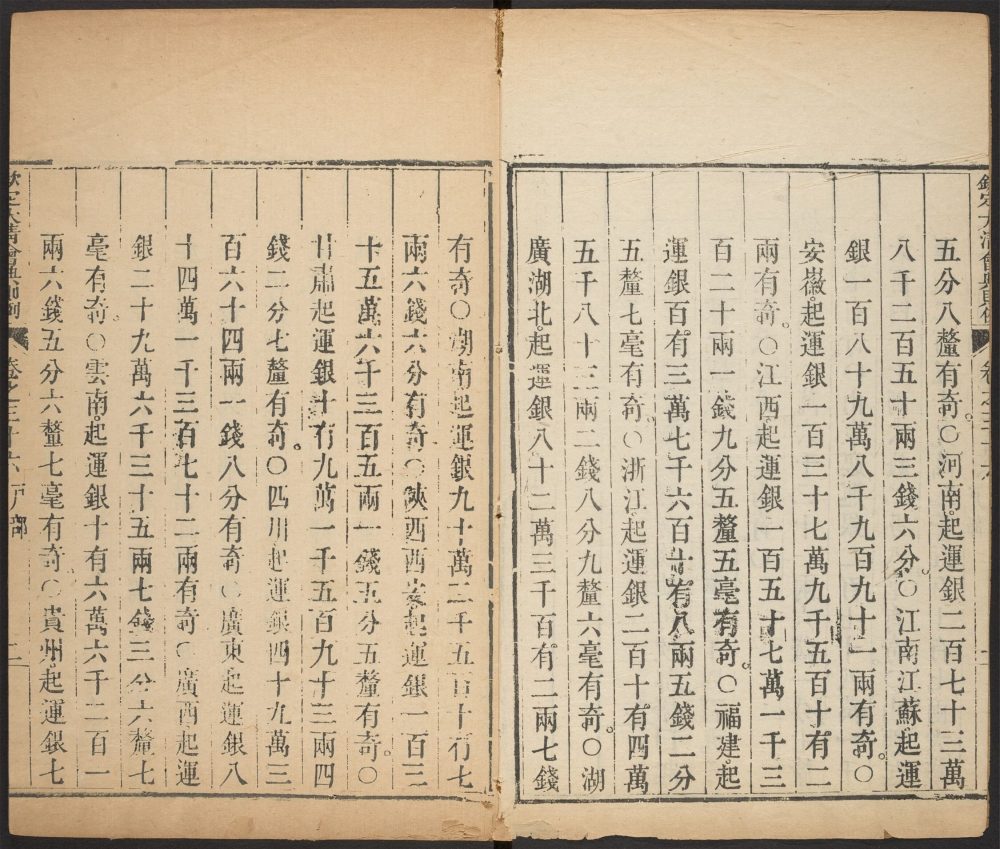 欽定大清會典則例 卷之三十六 戶部
五分八釐有奇○河南起運銀二百七十三萬
八千二百五十兩三錢六分○江南江蘇起運
銀一百八十九萬八千九百九十一兩有奇○
安徽起運銀一百三十七萬九千五百十有二
兩有奇○江西起運銀一百五十七萬一千三
百二十兩一錢九分五釐五毫有奇○福建起
運銀百有三萬七千六百廿有八兩五錢二分
五釐七毫有奇○浙江起運銀二百十有四萬
五千八十三兩二錢八分九釐六毫有奇○湖
廣湖北起運銀八十二萬三千百有二兩七錢
有奇○湖南起運銀九十萬二千五百十有七
兩六錢六分有奇○陝西西安起運銀一百三
十五萬六千三百五兩一錢五分五釐有奇○
甘肅起運銀十有九萬一千五百九十三兩四
錢二分七釐有奇○四川起運銀四十九萬三
百六十四兩一錢八分有奇○廣東起運銀八
十四萬一千三百七十二兩有奇○廣西起運
銀二十九萬六千三十五兩七錢三分六釐七
毫有奇○雲南起運銀十有六萬六千二百一
兩六錢五分六釐七毫有奇○貴州起運銀七
欽定大清會典則例 卷之三十六 戶部 二